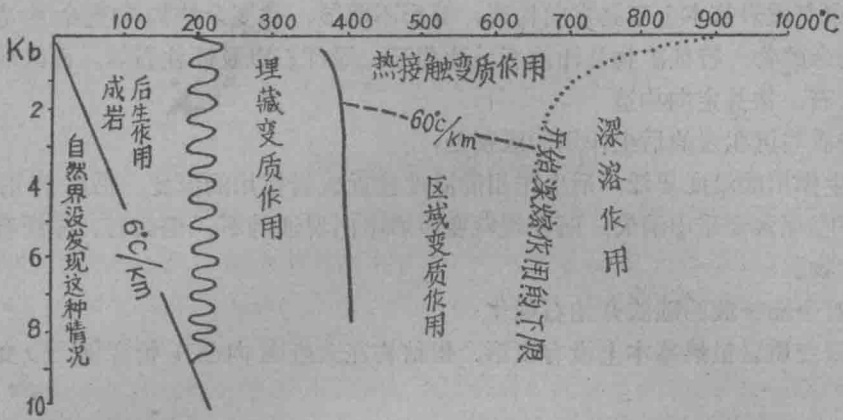 100 200 300 400 500 600 700 800 900 1000℃
Kb
2
4
6
8
10
自然界没发现这种情况
成岩
后生作用
6℃/KM
埋藏变质作用
热接触变质作用
60℃/KM
区域变质作用
开始深熔作用的下限
深溶作用